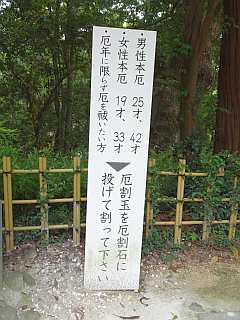 男性本厄　25才、42才
女性本厄　19才、33才
厄年に限らず厄を祓いたい方
▼
厄割玉を厄割石に
投げて割って下さい